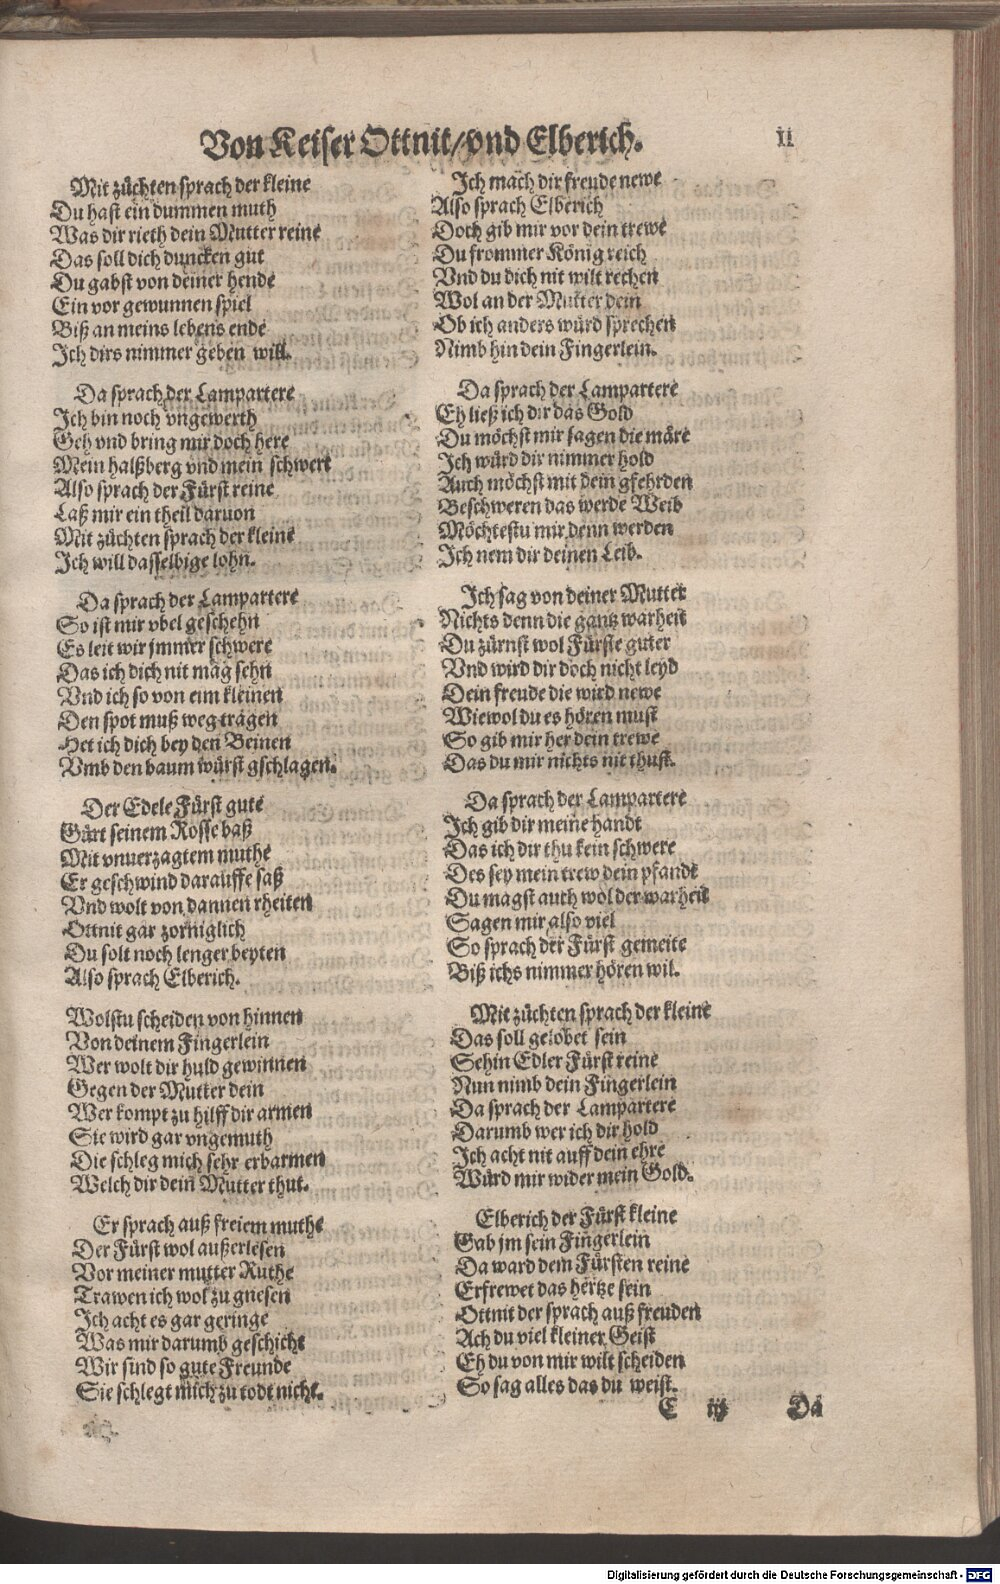 Von Keiser Ottnit/vnd Elberich. 11
Mit züchten sprach der kleine
Du hast ein dummen muth
Was dir rieth dein Mutter reine
Das soll dich duncken gut
Du gabst von deiner hende
Ein vor gewunnen spiel
Biß an meins lebens ende
Ich dirs nimmer geben will.
Da sprach der Lampartere
Ich bin noch vngewerth
Geh vnd bring mir doch here
Mein halßberg vnd mein schwert
Also sprach der Fürst reine
Laß mir ein theil daruon
Mit züchten sprach der kleine
Ich will dasselbige lohn.
Da sprach der Lampartere
So ist mir vbel geschehn
Es leit wir jmmer schwere
Das ich dich nit mag sehn
Vnd ich so von eim kleinen
Den spot muß weg tragen
Het ich dich bey den Beinen
Vmb den baum würst gschlagen.
Der Edele Fürst gute
Gürt seinem Rosse baß
Mit vnuerzagtem muthe
Er geschwind darauffe saß
Vnd wolt von dannen rheiten
Ottnit gar zorniglich
Du solt noch lenger beyten
Also sprach Elberich.
Wolstu scheiden von hinnen
Von deinem Fingerlein
Wer wolt dir huld gewinnen
Gegen der Mutter dein
Wer kompt zu hilff dir armen
Sie wird gar vngemuth
Die schleg mich sehr erbarmen
Welch dir dein Mutter thut.
Er sprach auß freiem muthe
Der Fürst wol außerlesen
Vor meiner mutter Ruthe
Trawen ich wol zu gnesen
Ich acht es gar geringe
Was mir darumb geschicht
Wir sind so gute Freunde
Sie schlegt mich zu todt nicht.
Ich mach dir freude newe
Also sprach Elberich
Doch gib mir vor dein trewe
Du frommer König reich
Vnd du dich nit wilt rechen
Wol an der Mutter dein
Ob ich anders würd sprechen
Nimb hin dein Fingerlein.
Da sprach der Lampartere
Eh ließ ich dir das Gold
Du möchst mir sagen die märe
Ich würd dir nimmer hold
Auch möchst mit dein gfehrden
Beschweren das werde Weib
Möchtestu mir denn werden
Ich nem dir deinen Leib.
Ich sag von deiner Mutter
Nichts denn die gantz warheit
Du zürnst wol Fürste guter
Vnd wird dir doch nicht leyd
Dein freude die wird newe
Wiewol du es hören must
So gib mir her dein trewe
Das du mir nichts nit thust.
Da sprach der Lampartere
Ich gib dir meine handt
Das ich dir thu kein schwere
Des sey mein trew dein pfandt
Du magst auch wol der warheit
Sagen mir also viel
So sprach der Fürst gemeite
Biß ichs nimmer hören wil.
Mit züchten sprach der kleine
Das soll gelobet sein
Sehin Edler Fürst reine
Nun nimb dein Fingerlein
Da sprach der Lampartere
Darumb wer ich dir hold
Ich acht nit auff dein ehre
Würd mir wider mein Gold.
Elberich der Fürst kleine
Gab jm sein Fingerlein
Da ward dem Fürsten reine
Erfrewet das hertze sein
Ottnit der sprach auß freuden
Ach du viel kleiner Geist
Eh du von mir wilt scheiden
So sag alles das du weist.
C iij Da
Digitalisierung gefördert durch die Deutsche Forschungsgemeinschaft - DFG